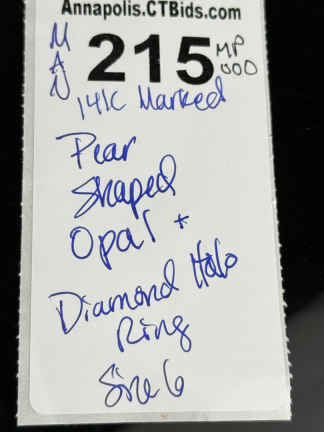 Annapolis.CTBids.com
MAN 215 MP
000
14K Marked
Pear
Shaped
Opal +
Diamond Halo
Ring
Size 6